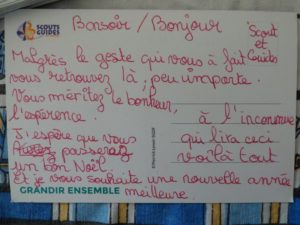 SCOUTS
GUIDES
Bonsoir / Bonjour
Scout
et
Guides
Malgrés le geste qui vous à fait
vous retrouvez là, peu importe.
Vous méritez le bonheur,
l'espérence.
à l'inconnue
qui lira ceci
voilà tout
J'espère que vous
passerez
un bon Noël.
Et je vous souhaite une nouvelle année
meilleure.
GRANDIR ENSEMBLE